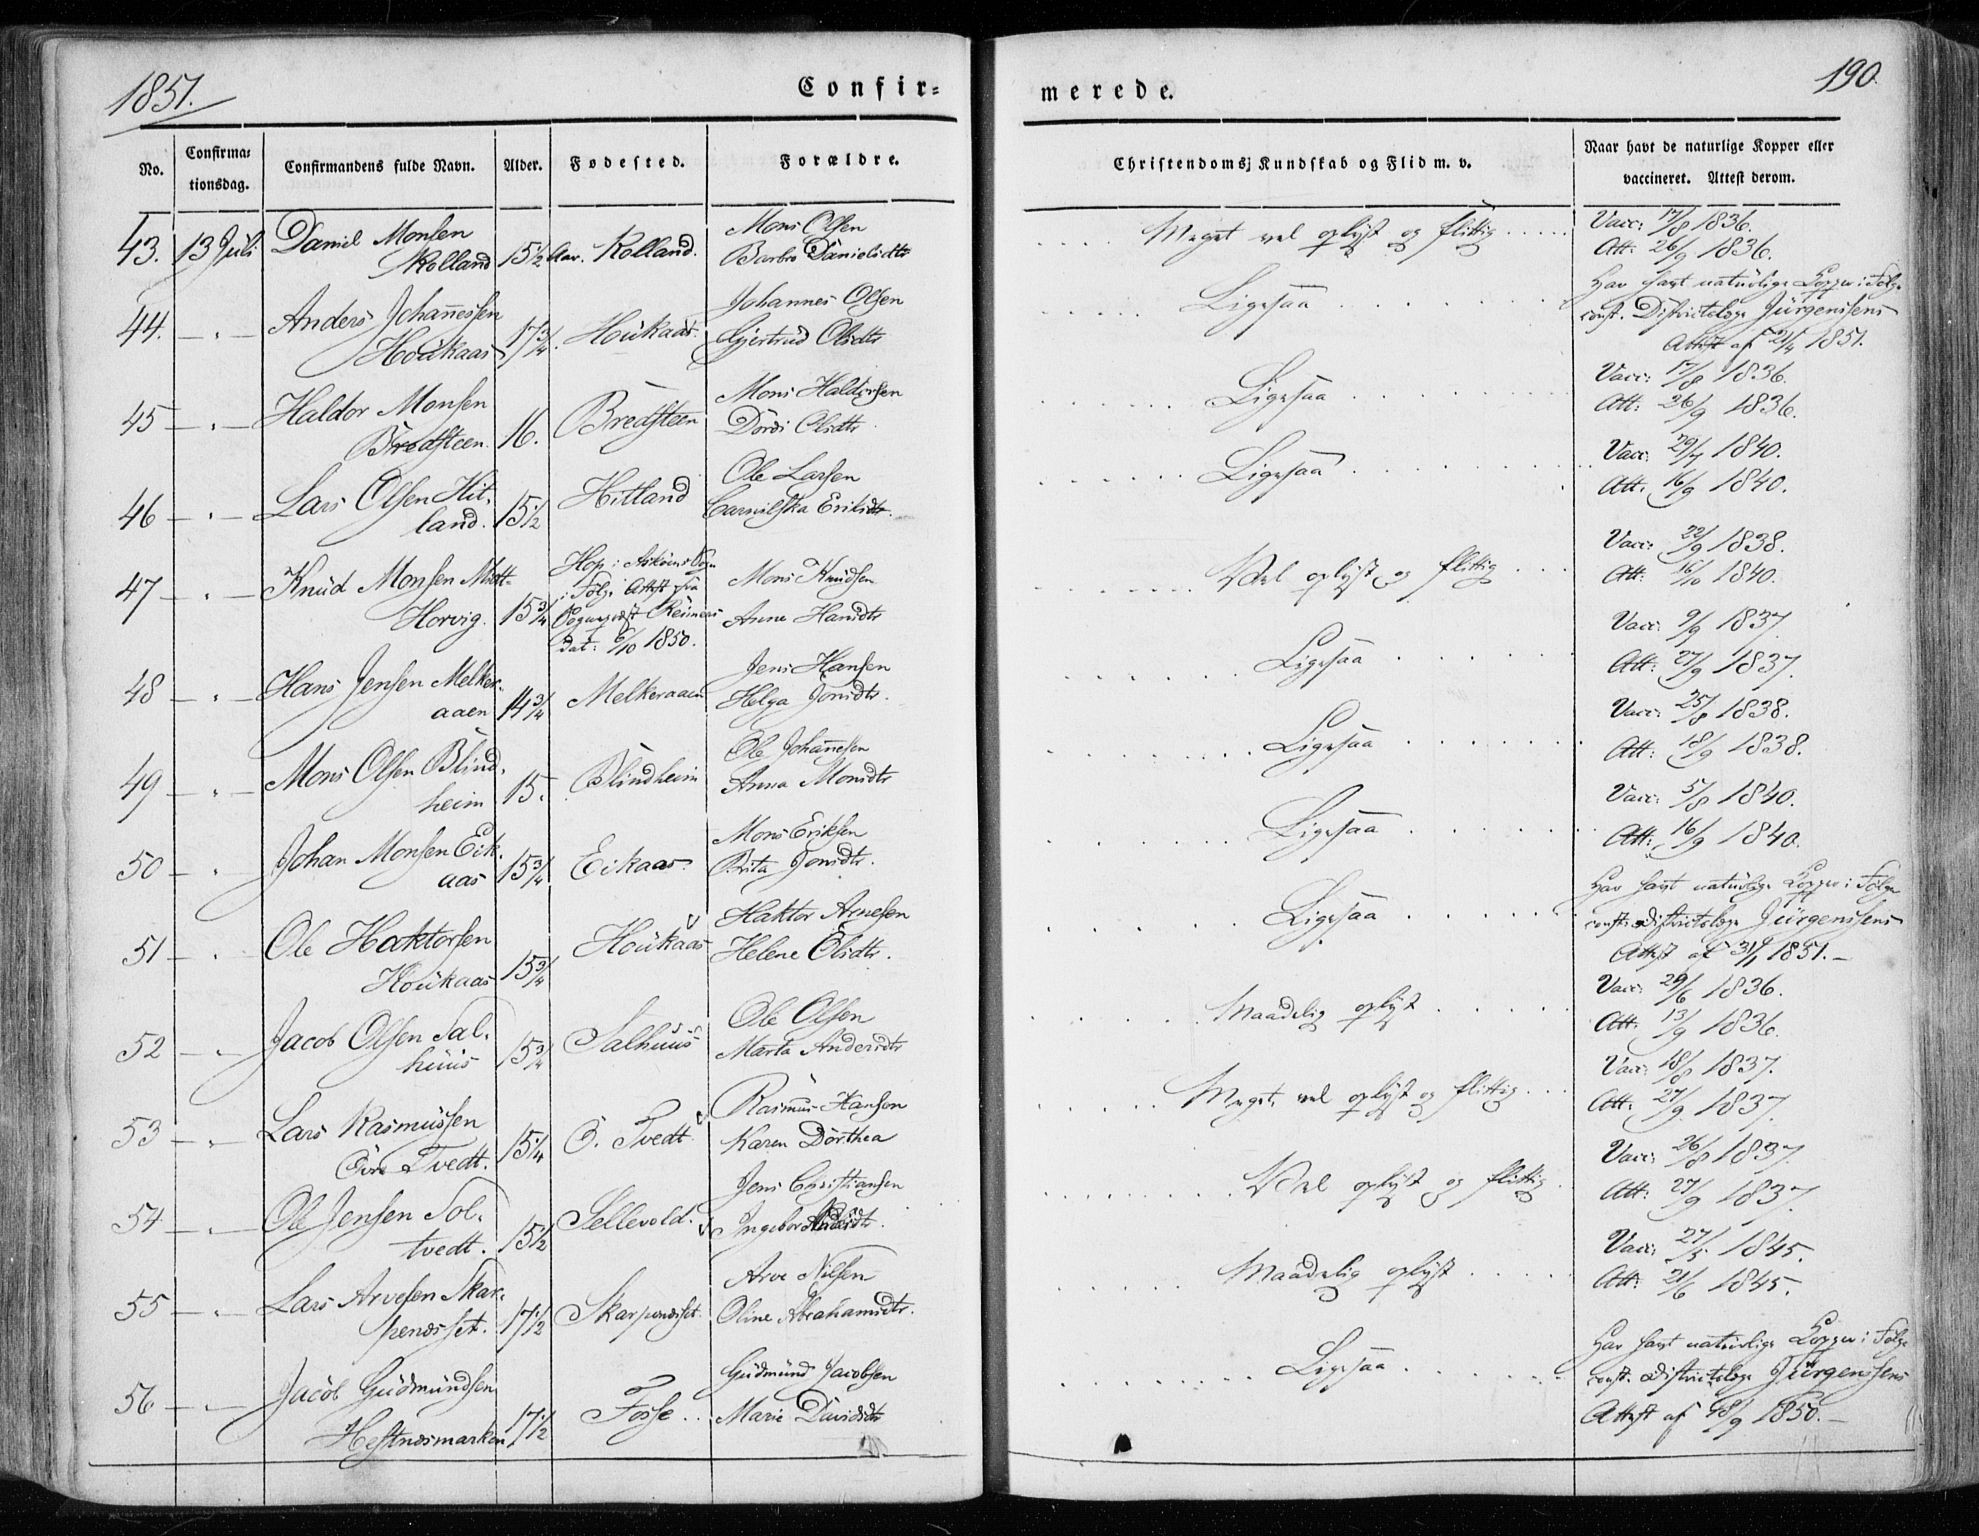 1851.
Confir-
merede.
190.
No.
Confirma-
tionsdag.
Confirmandens fulde Navn.
Alder.
Fødested.
Forældre.
Christendomsj Kundskab og Flid m. v.
Naar havt de naturlige Kopper eller
vaccineret. Attest derom.
43. 13 Juli Daniel Monsen
Rolland 15 1/2 Aar. Rolland.
Mons Olsen
Barbro Danielsdtr
Meget vel oplyst og flittig
Vacc: 17/8 1836.
Att: 26/9 1836.
44. — „ — Anders Johannessen
Houkaas 17 3/4. Houkaas.
Johannes Olsen
Gjertrud Olsdtr
Ligesaa
Har havt naturlige Kopper i Følge
const. Districtslæge Jürgensens
Attest af 21/4 1851.
45 — „ — Haldor Monsen
Bredsteen. 16. Bredsteen
Mons Haldorsen
Dordi Olsdtr
Ligesaa
Vacc: 17/8 1836.
Att: 26/9 1836.
46 — „ — Lars Olsen Hit-
land. 15 1/2 Hitland
Ole Larsen
Eriksdtr.
Ligesaa
Vacc: 29/7 1840.
Att. 16/9 1840.
47 — „ — Knud Monsen
Horvig. 15 3/4
Hop i Askøens Sogn
i Følge Attest fra
Sogneprest Reimers
dat: 6/10 1850.
Mons Knudsen
Anne Hansdtr
Vel oplyst og flittig
Vacc: 22/9 1838.
Att: 16/10 1840.
48 — „ — Hans Jensen Melker-
aaen 14 3/4 Melkeraaen
Jens Hansen
Helga Jonsdtr.
Ligesaa
Vacc: 9/9 1837.
Att: 27/9 1837.
49 — „ — Mons Olsen Blind-
heim 15. Blindheim
Ole Johannesen
Anna Monsdtr
Ligesaa
Vacc: 25/8 1838.
Att: 18/9 1838.
50 — „ — Johan Monsen Eik-
aas 15 3/4 Eikaas.
Mons Eriksen
Brita Jonsdtr.
Ligesaa
Vacc: 5/8 1840.
Att: 16/9 1840.
51 — „ — Ole Haktorsen
Houkaas 15 3/4 Houkaas
Haktor Arnesen
Helene Elisdtr.
Ligesaa
Har havt naturlige Kopper i Følge
const. Districtslæge Jürgensens
Attest af 31/1 1851. —
52 — „ — Jacob Olsen Sal-
huus 15 3/4 Salhuus
Ole Olsen
Marta Andersdtr
Maadelig oplyst
Vacc: 29/6 1836.
Att: 13/9 1836.
53 — „ — Lars Rasmussen
Øvre Tvedt. 15 1/4 Ö. Tvedt
Rasmus Hansen
Karen Dorthea
Meget vel oplyst og flittig
Vacc: 18/8 1837.
Att: 27/9 1837.
54 — „ — Ole Jensen Sol-
tvedt. 15 1/2 Sellevold.
Jens Christiansen
Ingebor
Vel oplyst og flittig
Vacc: 26/8 1837.
Att: 27/9 1837.
55 — „ — Lars Arvesen Skar-
penesset. 17 1/2 Skarpenesset.
Arve Nilsen
Oline Abrahamsdtr.
Maadelig oplyst
Vacc: 27/5 1845.
Att: 21/6 1845.
56. — „ — Jacob Gudmundsen
Hestnesmarken 17 1/2 Fosse
Gudmund Jacobsen
Marie Davidsdtr
Ligesaa
Har havt naturlige Kopper i Følge
const. Districtslæge Jürgensens
Attest af 18/9 1850. —